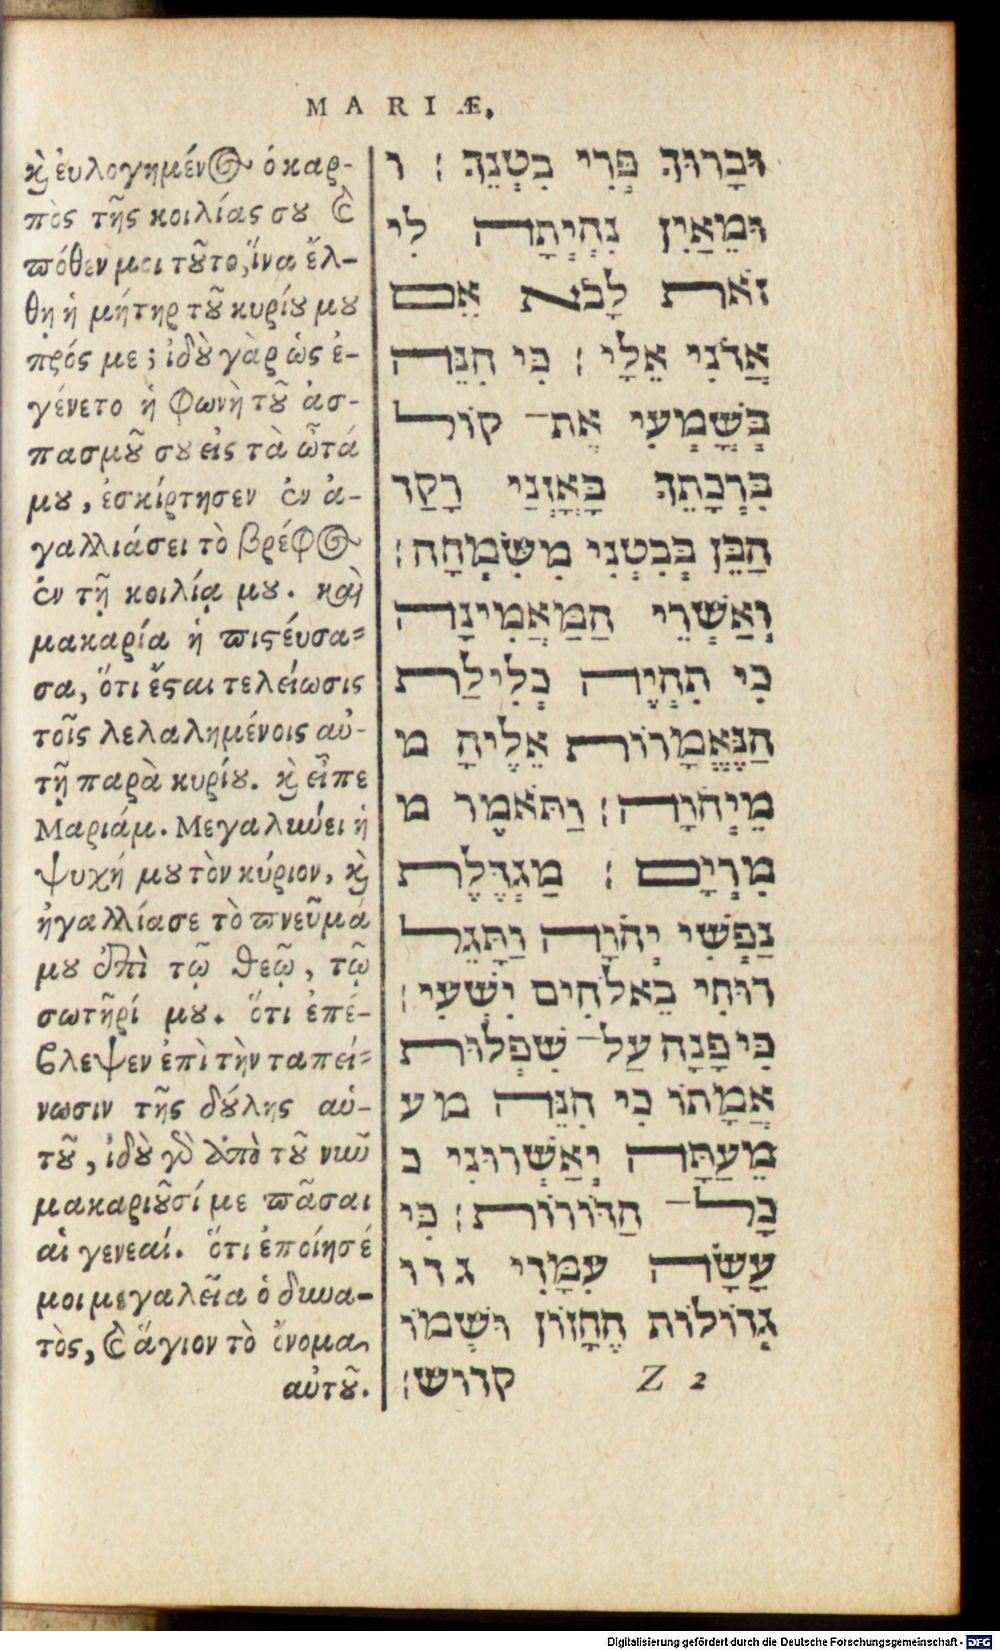 MARIÆ.
ϗ̀ ἐυλογημένος ὁ καρ-
πὸς τῆς κοιλίας σȣ Ϗ
πόθεν μοι τȣ̃το, ἵνα ἔλ-
θῃ ἡ μήτηρ τȣ̃ κυρίȣ μȣ
πρός με; ἰδȣ̀ γὰρ ὡς ἐ-
γένετο ἡ φωνὴ τȣ̃ ἀσ-
πασμȣ̃ σȣ εἰς τὰ ὦτά
μȣ, ἐσκίρτησεν ἐν ἀ-
γαλλιάσει τὸ βρέφος
ἐν τῇ κοιλίᾳ μȣ. καὶ
μακαρία ἡ πιστέυσα-
σα, ὅτι ἔσται τελείωσις
τοῖς λελαλημένοις αὐ-
τῇ παρὰ κυρίȣ. ϗ̀ εἶπε
Μαριάμ. Μεγαλύνει ἡ
ψυχή μȣ τὸν κύριον, ϗ̀
ἠγαλλίασε τὸ πνεῦμά
μȣ ἐπὶ τῷ θεῷ, τῷ
σωτῆρί μȣ. ὅτι ἐπέ-
βλεψεν ἐπὶ τὴν ταπεί-
νωσιν τῆς δȣ́λης αὑ-
τȣ̃, ἰδȣ̀ γὰρ ἀπὸ τȣ̃ νῦν
μακαριȣ̃σί με πᾶσαι
αἱ γενεαί. ὅτι ἐποίησέ
μοι μεγαλεῖα ὁ δυνα-
τὸς, ϗ̀ ἅγιον τὸ ὄνομα
αὐτȣ̃.
וּבָרוּךְ פְּרִי בִטְנֵךְ׃ ו
וּמֵאַיִן נִהְיְתָה לִי
זֹאת לָבֹא אֵם
אֲדֹנִי אֵלָי׃ כִּי הִנֵּה
בְּשָׁמְעִי אֶת־ קוֹל
בִּרְכָתֵךְ בְּאָזְנַי רָקַד
הַבֵּן בְּבִטְנִי מִשִּׂמְחָה׃
וְאַשְׁרֵי הַמַּאֲמִינָה
כִּי תִהְיֶה כְלִילַת
הַנֶּאֱמָרוֹת אֵלֶיהָ מ
מֵיְהֹוָה׃ וַתֹּאמֶר מ
מִרְיָם׃ מַגְדֶּלֶת
נַפְשִׁי יְהוָֹה וַתָּגֵל
רוּחִי בֵאלֹהִים יִשְׁעִי׃
כִּי פָנָה עַל־ שִׁפְלוּת
אֲמָתוֹ כִּי הִנֵּה מ ע
מֵעַתָּה יְאַשְּׁרוּנִי כ
כָל־ הַדּוֹרוֹת׃ כִּי
עָשָׂה עִמָּדִי ג ד ו
גְּדוֹלוֹת הֶחָזוֹן וּשְׁמוֹ
קדוש׃
Z 2
Digitalisierung gefördert durch die Deutsche Forschungsgemeinschaft - DFG